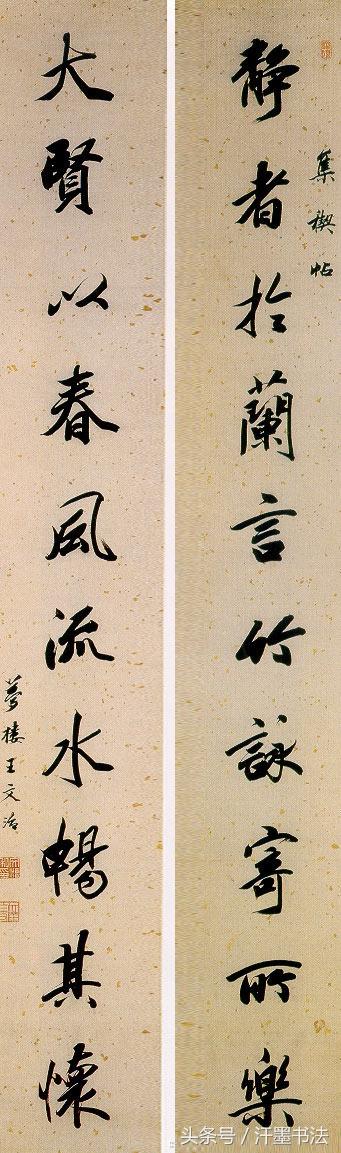 集禊帖
靜者於蘭言竹詠寄所樂
大賢以春風流水暢其懷
夢樓王文治
头条号／汗墨书法